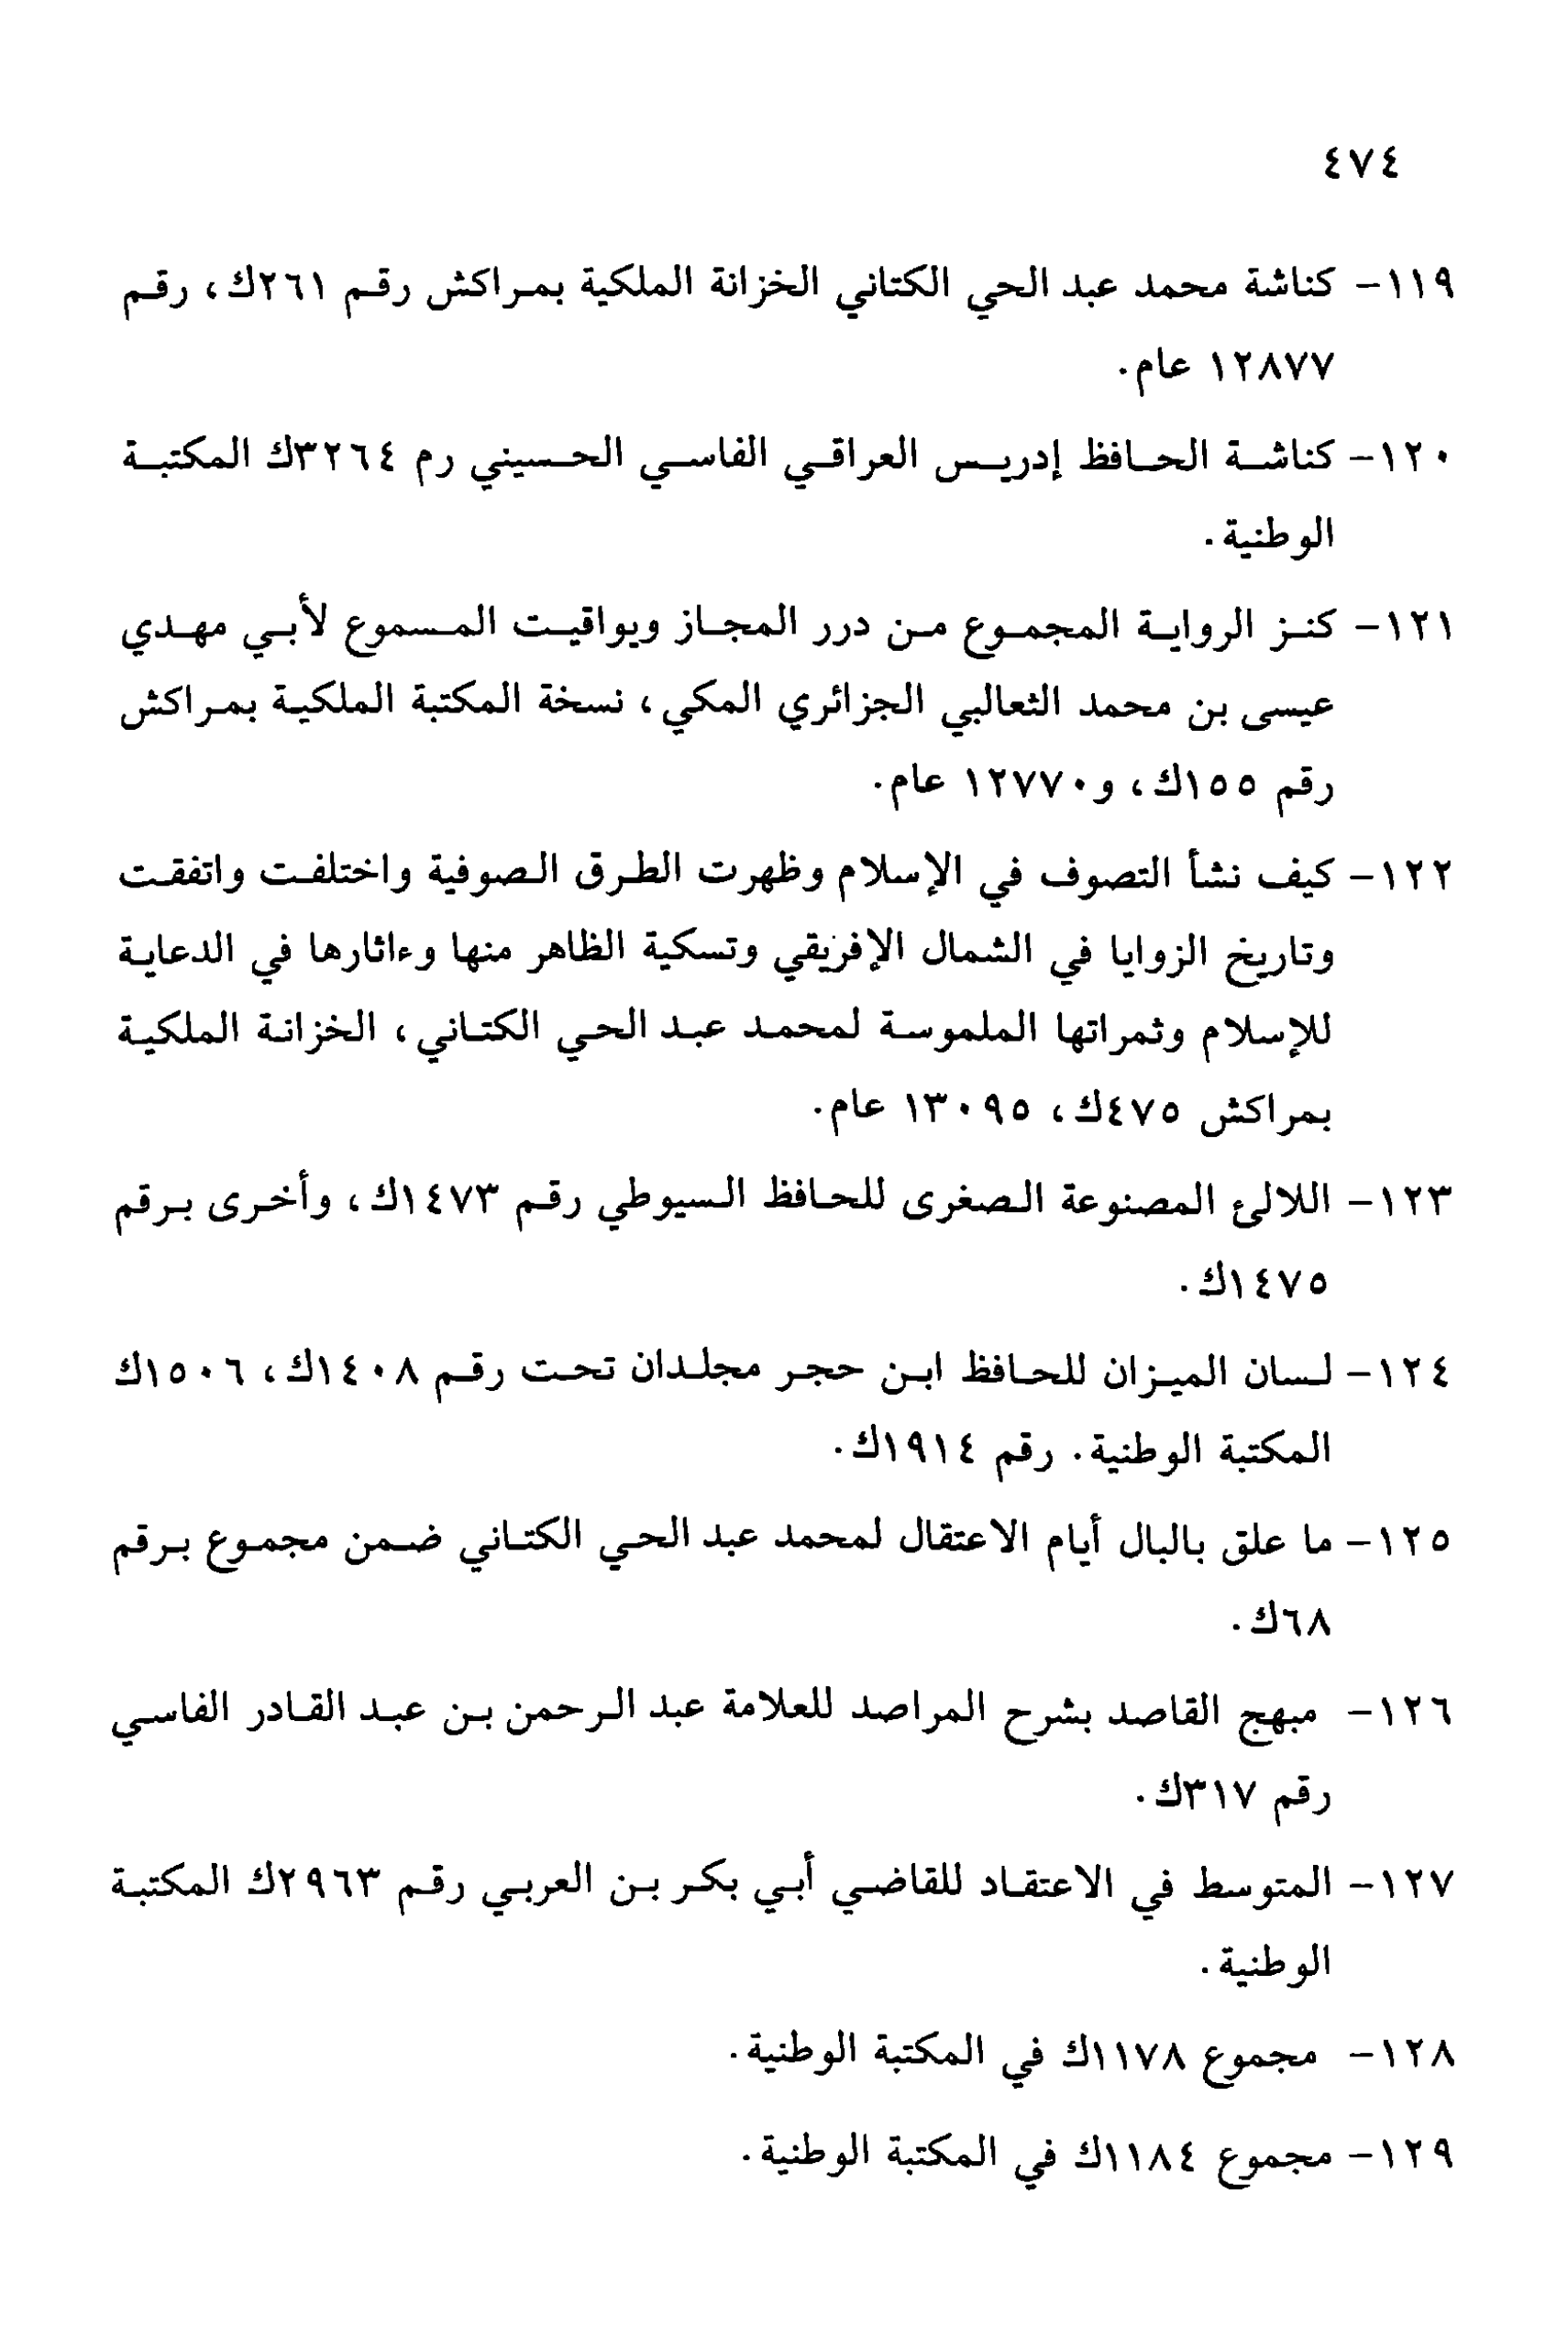 ٤٧٤
١١٩- كناشة محمد عبد الحي الكتاني الخزانة الملكية بمراكش رقم ٢٦١ك، رقم
١٢٨٧٧ عام.
١٢٠- كناشة الحافظ إدريس العراقي الفاسي الحسيني رم ٣٢٦٤ك المكتبة
الوطنية.
١٢١- كنز الرواية المجموع من درر المجاز ويواقيت المسموع لأبي مهدي
عيسى بن محمد الثعالبي الجزائري المكي، نسخة المكتبة الملكية بمراكش
رقم ١٥٥ك، و١٢٧٧٠ عام.
١٢٢- كيف نشأ التصوف في الإسلام وظهرت الطرق الصوفية واختلفت واتفقت
وتاريخ الزوايا في الشمال الإفريقي وتسكية الظاهر منها وءاثارها في الدعاية
للإسلام وثمراتها الملموسة لمحمد عبد الحي الكتاني، الخزانة الملكية
بمراكش ٤٧٥ك، ١٣٠٩٥ عام.
١٢٣- اللالئ المصنوعة الصغرى للحافظ السيوطي رقم ١٤٧٣ك، وأخرى برقم
١٤٧٥ك.
١٢٤- لسان الميزان للحافظ ابن حجر مجلدان تحت رقم ١٤٠٨ك، ١٥٠٦ك
المكتبة الوطنية. رقم ١٩١٤ك.
١٢٥- ما علق بالبال أيام الاعتقال لمحمد عبد الحي الكتاني ضمن مجموع برقم
٦٨ك.
١٢٦- مبهج القاصد بشرح المراصد للعلامة عبد الرحمن بن عبد القادر الفاسي
رقم ٣١٧ك.
١٢٧- المتوسط في الاعتقاد للقاضي أبي بكر بن العربي رقم ٢٩٦٣ك المكتبة
الوطنية.
١٢٨- مجموع ١١٧٨ك في المكتبة الوطنية.
١٢٩- مجموع ١١٨٤ك في المكتبة الوطنية.